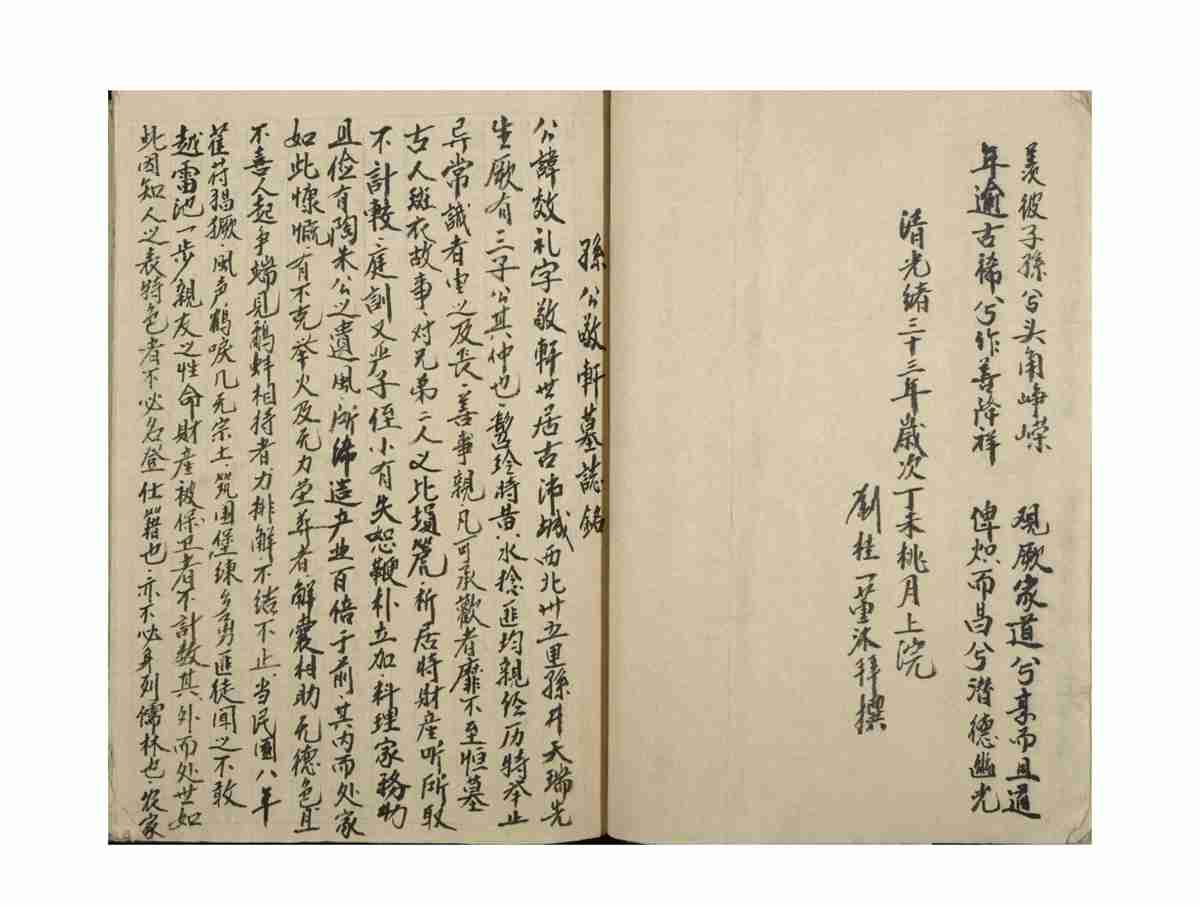 羨彼子孫兮头角峥嵘　观厥家道兮亨而且遒
年逾古稀兮作善降祥　俾炽而昌兮潜德幽光
清光绪三十三年歲次丁未桃月上浣
劉桂一薰沐拜撰
孫公敬軒墓誌銘
公諱效礼字敬軒世居古沛城西北卅五里孫井天瑞先
生厥有三子公其仲也髫玲時黄水捻匪均親伶历特举止
异常誠者重之及长善事親凡可承歡者靡不至恒墓
古人斑衣故事对兄弟二人义比埙篪析居時財産听所取
不計較庭訓又严子侄小有失恕鞭朴立加料理家務勤
且俭有陶朱公之遺風所沛造产业百倍于前其内而处家
如此慷慨有不克举火及无力荣葬者解囊相助无德色且
不喜人起争端見鹬蚌相持者力排解不结不止当民國八年
萑苻猖獗風声鶴唳几无宗土筑围堡練乡勇匪徒闻之不敢
越雷池一步親友之性命財産被保卫者不計数其外而处世如
此因知人之表特色者不必名登仕籍也亦不必身列儒林也农家